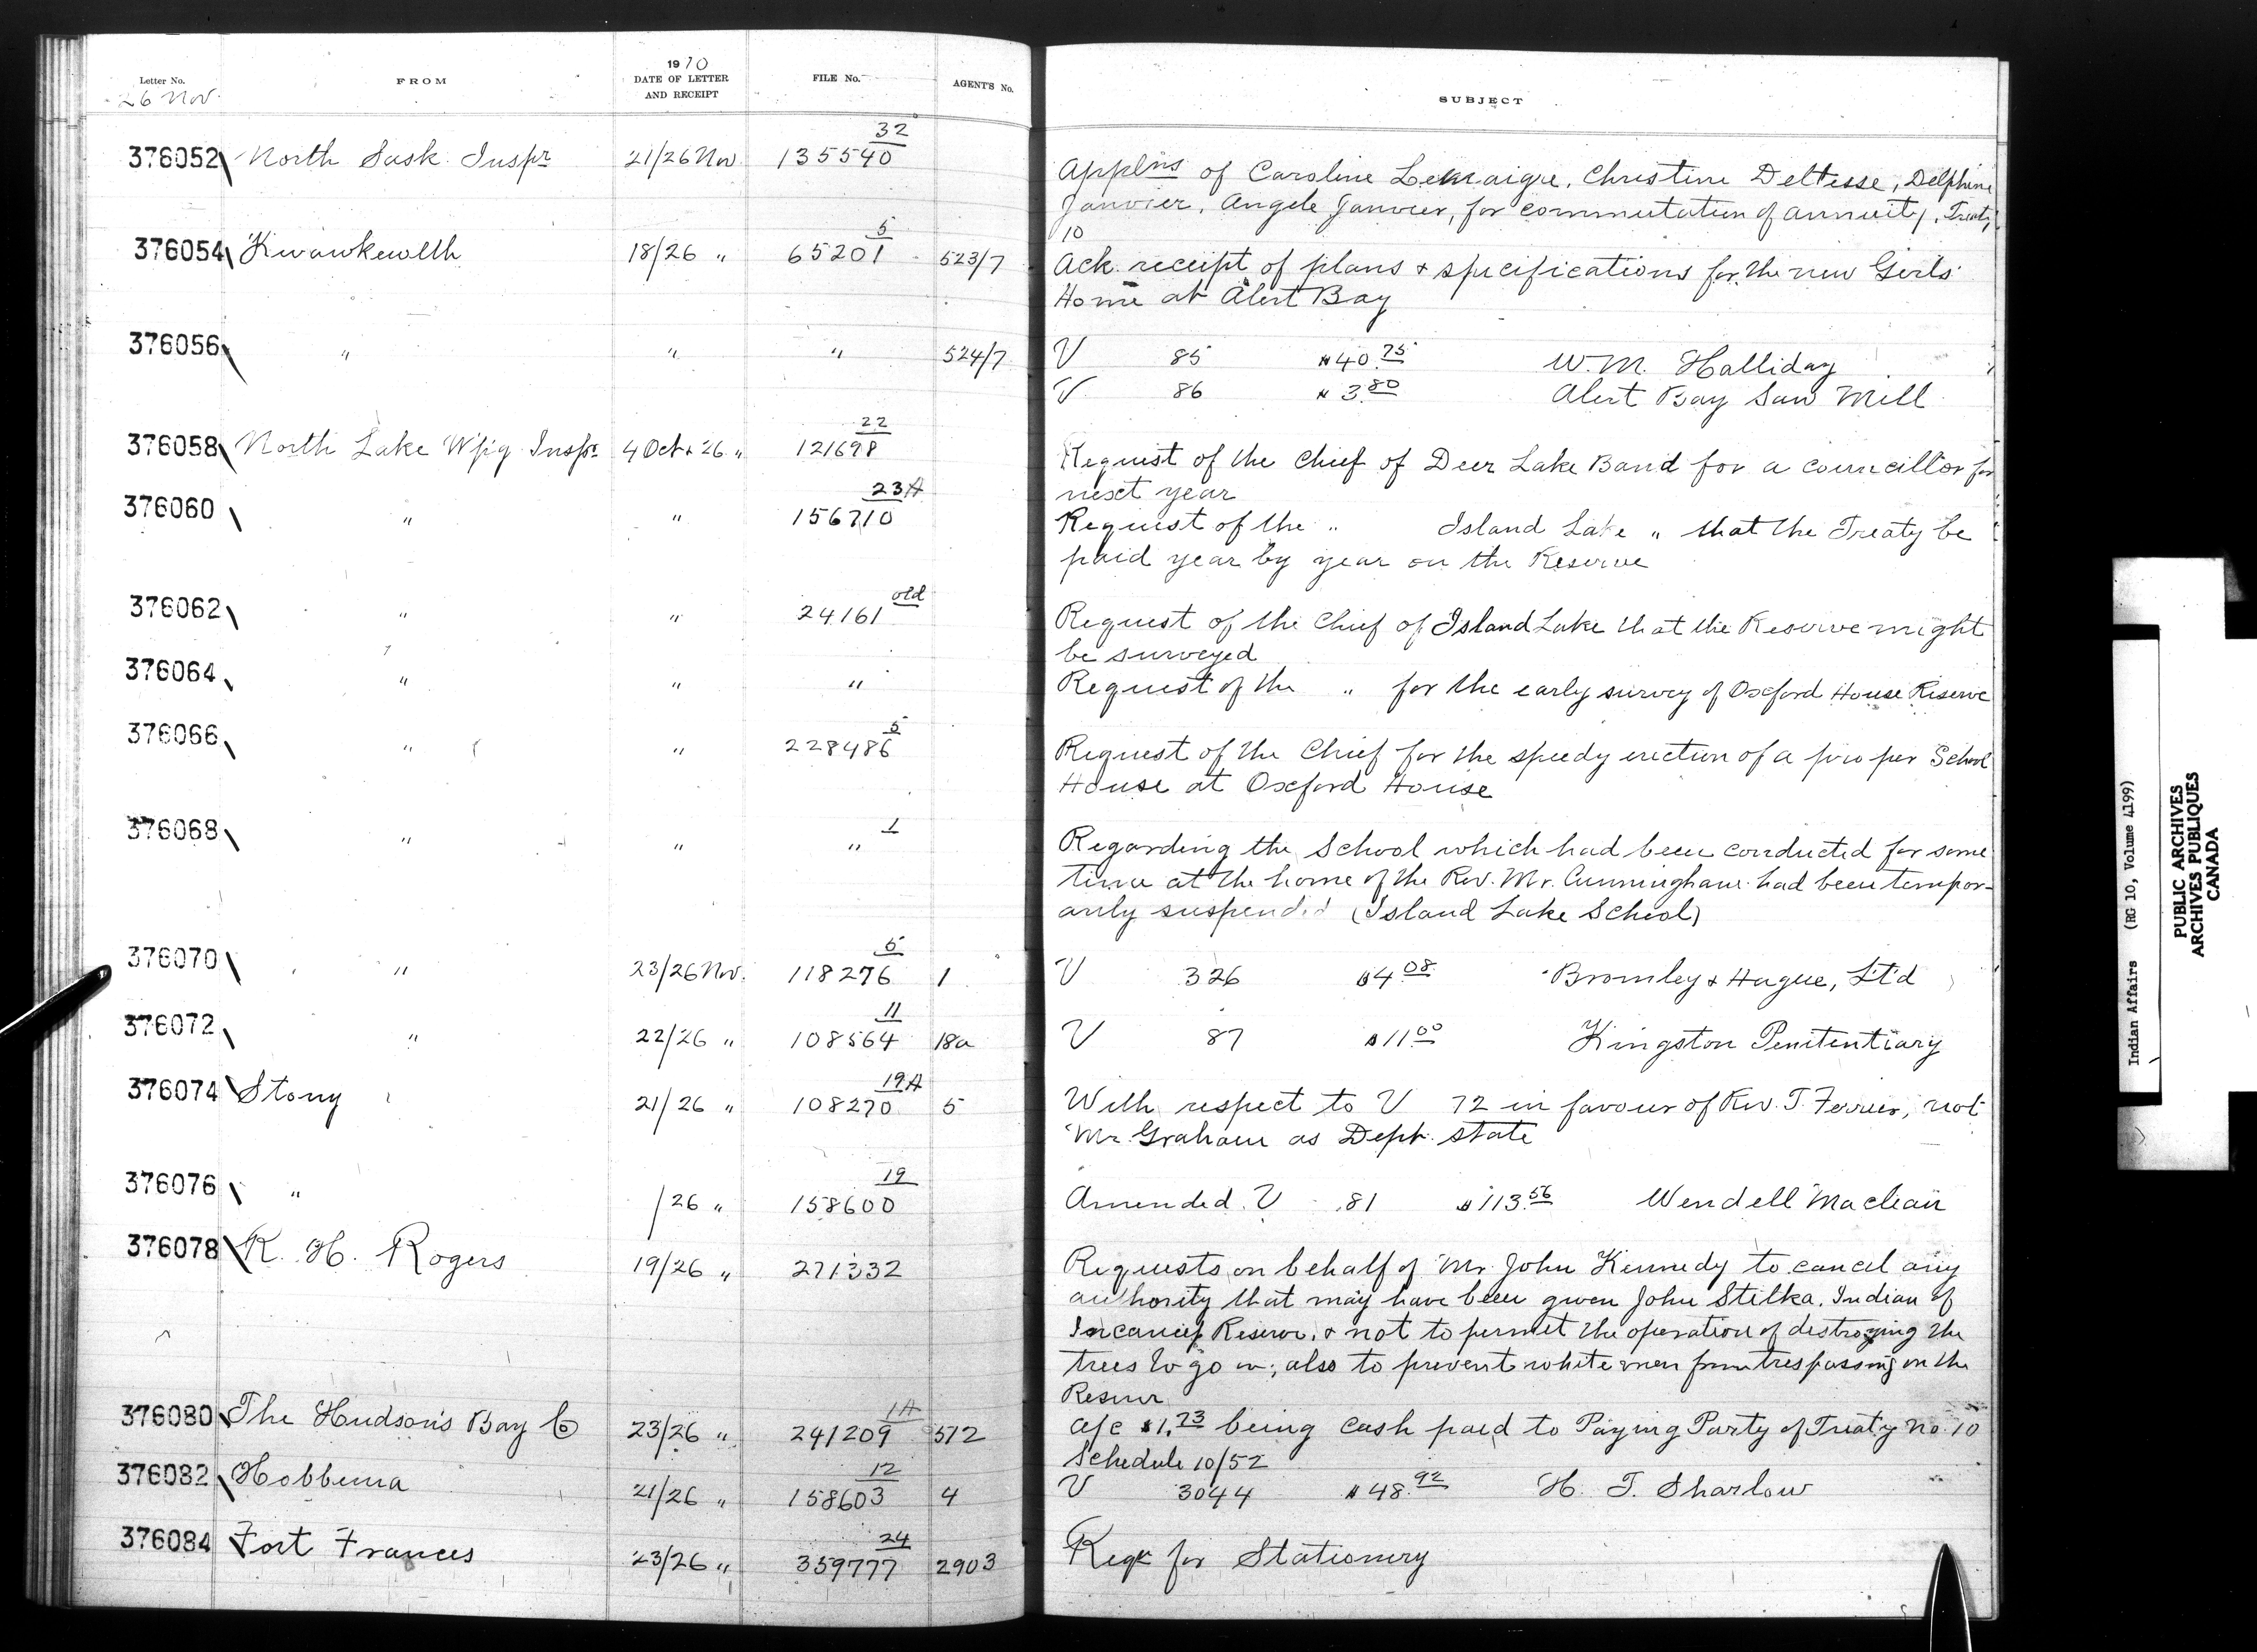 Letter No. FROM 1910 DATE OF LETTER AND RECEIPT FILE No. AGENT'S No. SUBJECT
26 Nov.
376052 North Sask Inspr 21/26 Nov 135540 32
Applns of Caroline Lemaigre, Christine Deltesse, Delphine
Janvier, Angele Janvier, for commutation of annuity, Treaty
10
376054 Kwawkewlth 18/26 " 65201 5 523/7
Ack. receipt of plans & specifications for the new Girls'
Home at Alert Bay
376056 " " " 524/7 V 85 $40.75 W. M. Halliday
V 86 " 3.80 Alert Bay Saw Mill
376058 North Lake W'pig Inspr 4 Oct & 26 " 121698 22
Request of the Chief of Deer Lake Band for a councillor for
next year
376060 " " 156710 23A
Request of the " Island Lake " that the Treaty be
paid year by year on the Reserve
376062 " " 24161 old
Request of the Chief of Island Lake that the Reserve might
be surveyed
376064 " " "
Request of the " for the early survey of Oxford House Reserve
376066 " " 228486 5
Request of the Chief for the speedy erection of a proper School
House at Oxford House
376068 " " " 1
Regarding the School which had been conducted for some
time at the home of the Rev. Mr. Cunningham had been tempor-
arily suspended (Island Lake School)
376070 " 23/26 Nov. 118276 5 1 V 326 $4.08 Bromley & Hague, Ltd
376072 " 22/26 " 108564 11 18a V 87 $11.00 Kingston Penitentiary
376074 Stony 21/26 " 108270 19A 5
With respect to V 72 in favour of Rev. T. Ferrier, not
Mr. Graham as Dept. state
376076 " /26 " 158600 19 Amended V 81 $113.56 Wendell Maclean
376078 R. H. Rogers 19/26 " 271332
Requests on behalf of Mr. John Kennedy to cancel any
authority that may have been given John Stilka, Indian of
Reserve, & not to permit the operation of destroying the
trees to go on; also to prevent white men from trespassing on the
Reserve
376080 The Hudson's Bay Co 23/26 " 241209 1A 572
a/c $1.73 being cash paid to Paying Party of Treaty No. 10
Schedule 10/52
376082 Hobbema 21/26 " 158603 12 4 V 3044 $48.92 H. T. Sharlow
376084 Fort Frances 23/26 " 359777 24 2903 Reqn for Stationery
Indian Affairs (RG 10, Volume 4199)
PUBLIC ARCHIVES
ARCHIVES PUBLIQUES
CANADA